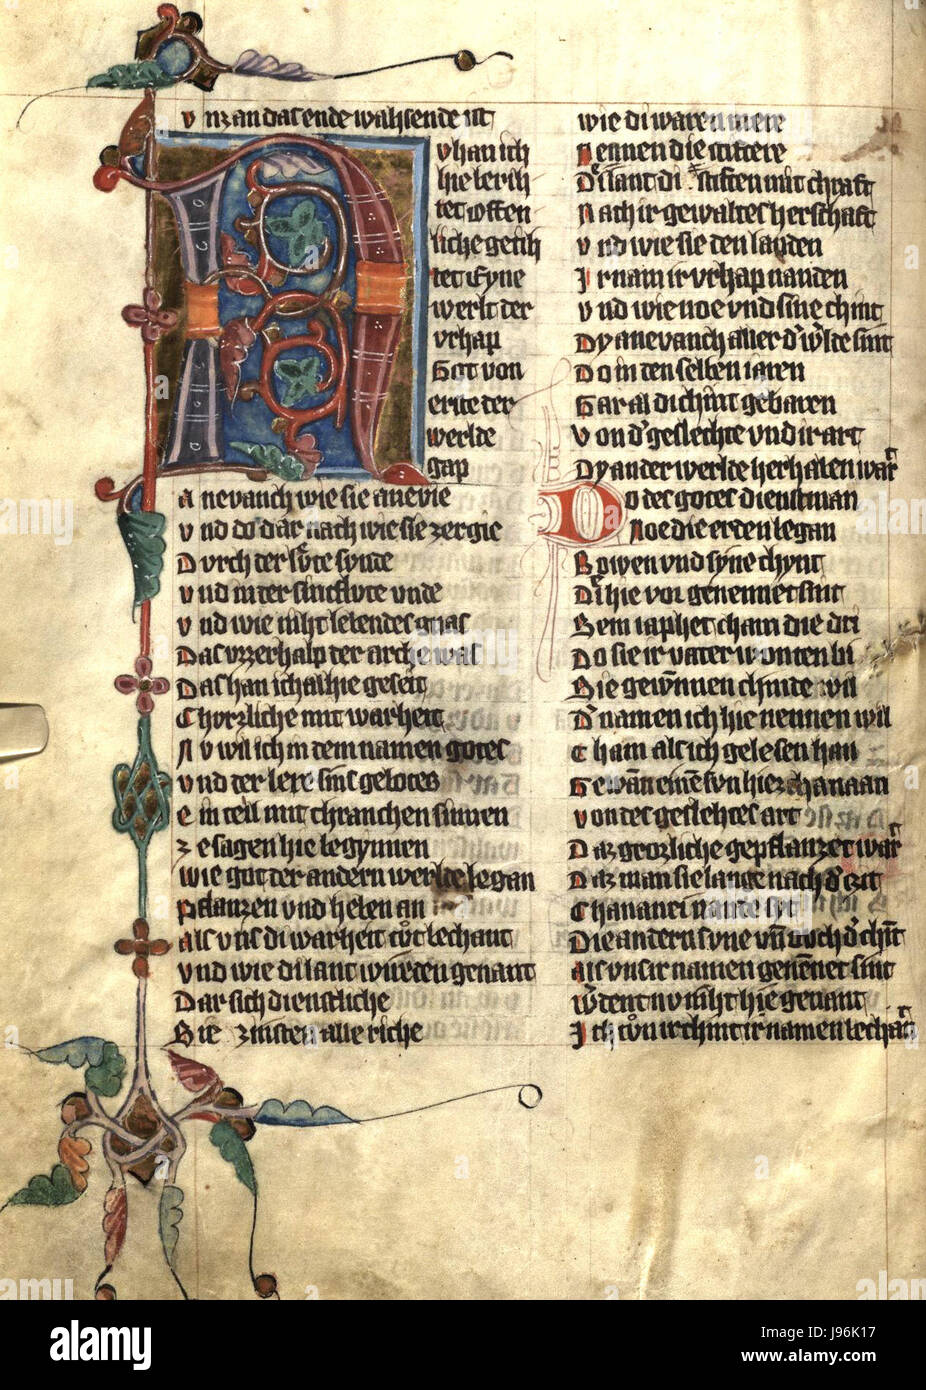 Vnz an das ende wahsende ist
NV han ich
hie berih
tet offen
liche getih
tet Eyne
werlt der
vrhap
Got von
erste der
werlde
gap
Anevanch wie sie anevie
Vnd do dar nach wie sie zergie
Dvrch der svͤte synte
Vnd in der sinflvte vnde
Vnd wie niht lebendes gnas
Das vzzerhalp der arche was
Das han ich alhie geseit
Chvrzliche mit warheit
Nv wil ich in dem namen gotes
Vnd der lere sins gebotes
Ein teil mit chranchen sinnen
Ze sagen hie begynnen
Wie got der andern werlde began
Pflanzen vnd heben an
Als vns di warheit tvͦt bechant
Vnd wie di lant wurden genant
Dar sich dienstliche
Sie zinsten alle riche
Wie di waren mere
Nennen die stittere
Dˢ lant di stiften mit chraft
Nach ir gewaltes herschaft
Vnd wie sie den landen
Ir nam ir vrhap nanden
Vnd wie noe vnd sine chint
Dy anevanch aller dˢ wˢlde sint
Do in den selben iaren
Gar al di chint gebaren
Von dˢ geslechte vnd ir art
Dy ander werlde herhaben wart
Do der gotes dienstman
Noe die erden began
Bowen vnd syne chynt
Di hie vor genennet sint
Sem iaphet cham die dri
Do sie ir vater wonten bi
Sie gewnnen chinde vil
Dˢ namen ich hie nennen wil
Cham als ich gelesen han
Gewan einē svn hiez chanaan
Von des geslehtes art
Daz grozliche gepflanzet wart
Daz man sie lange nach dˢ zit
Chananei nande syt
Die andern syne vnd ovch dˢ chint
Als vns ir namen genennet sint
Wˢdent nv niht hie genant
Ich tvͦn ir chint ir namen bechant
alamy
Image ID: J96K17
www.alamy.com